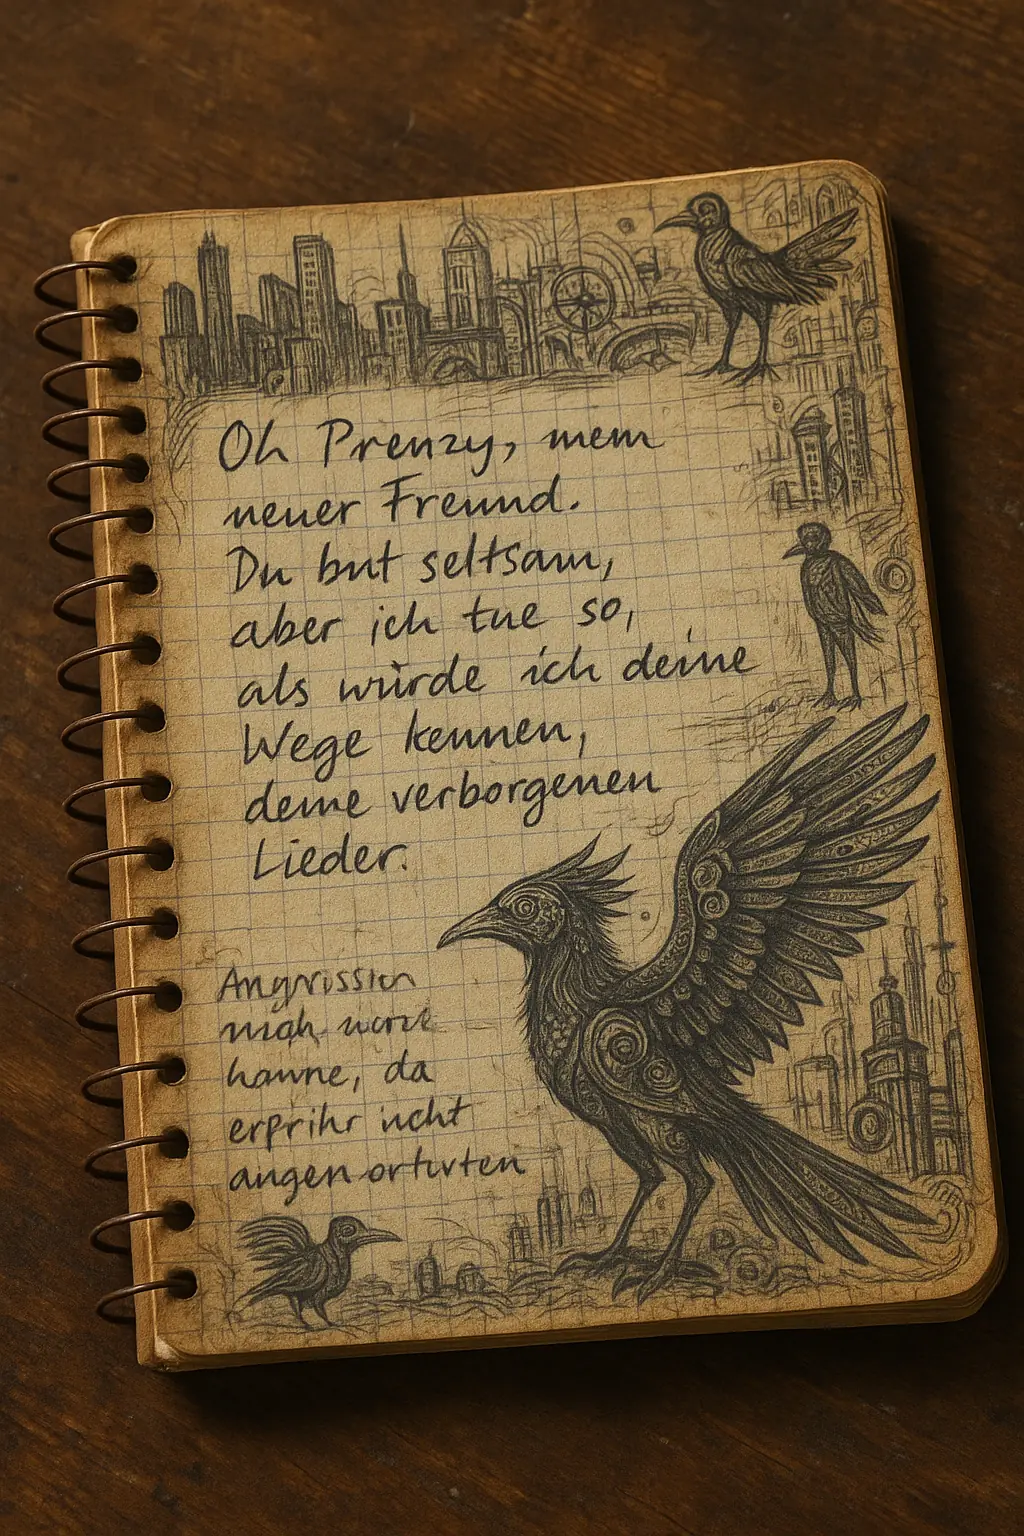 Oh Prenzy, mem
neuer Freund.
Du but seltsam,
aber ich tue so,
als würde ich deine
Wege kennen,
deme verborgenen
Lieder.
haune, da
erprihr ucht
angen ortivten